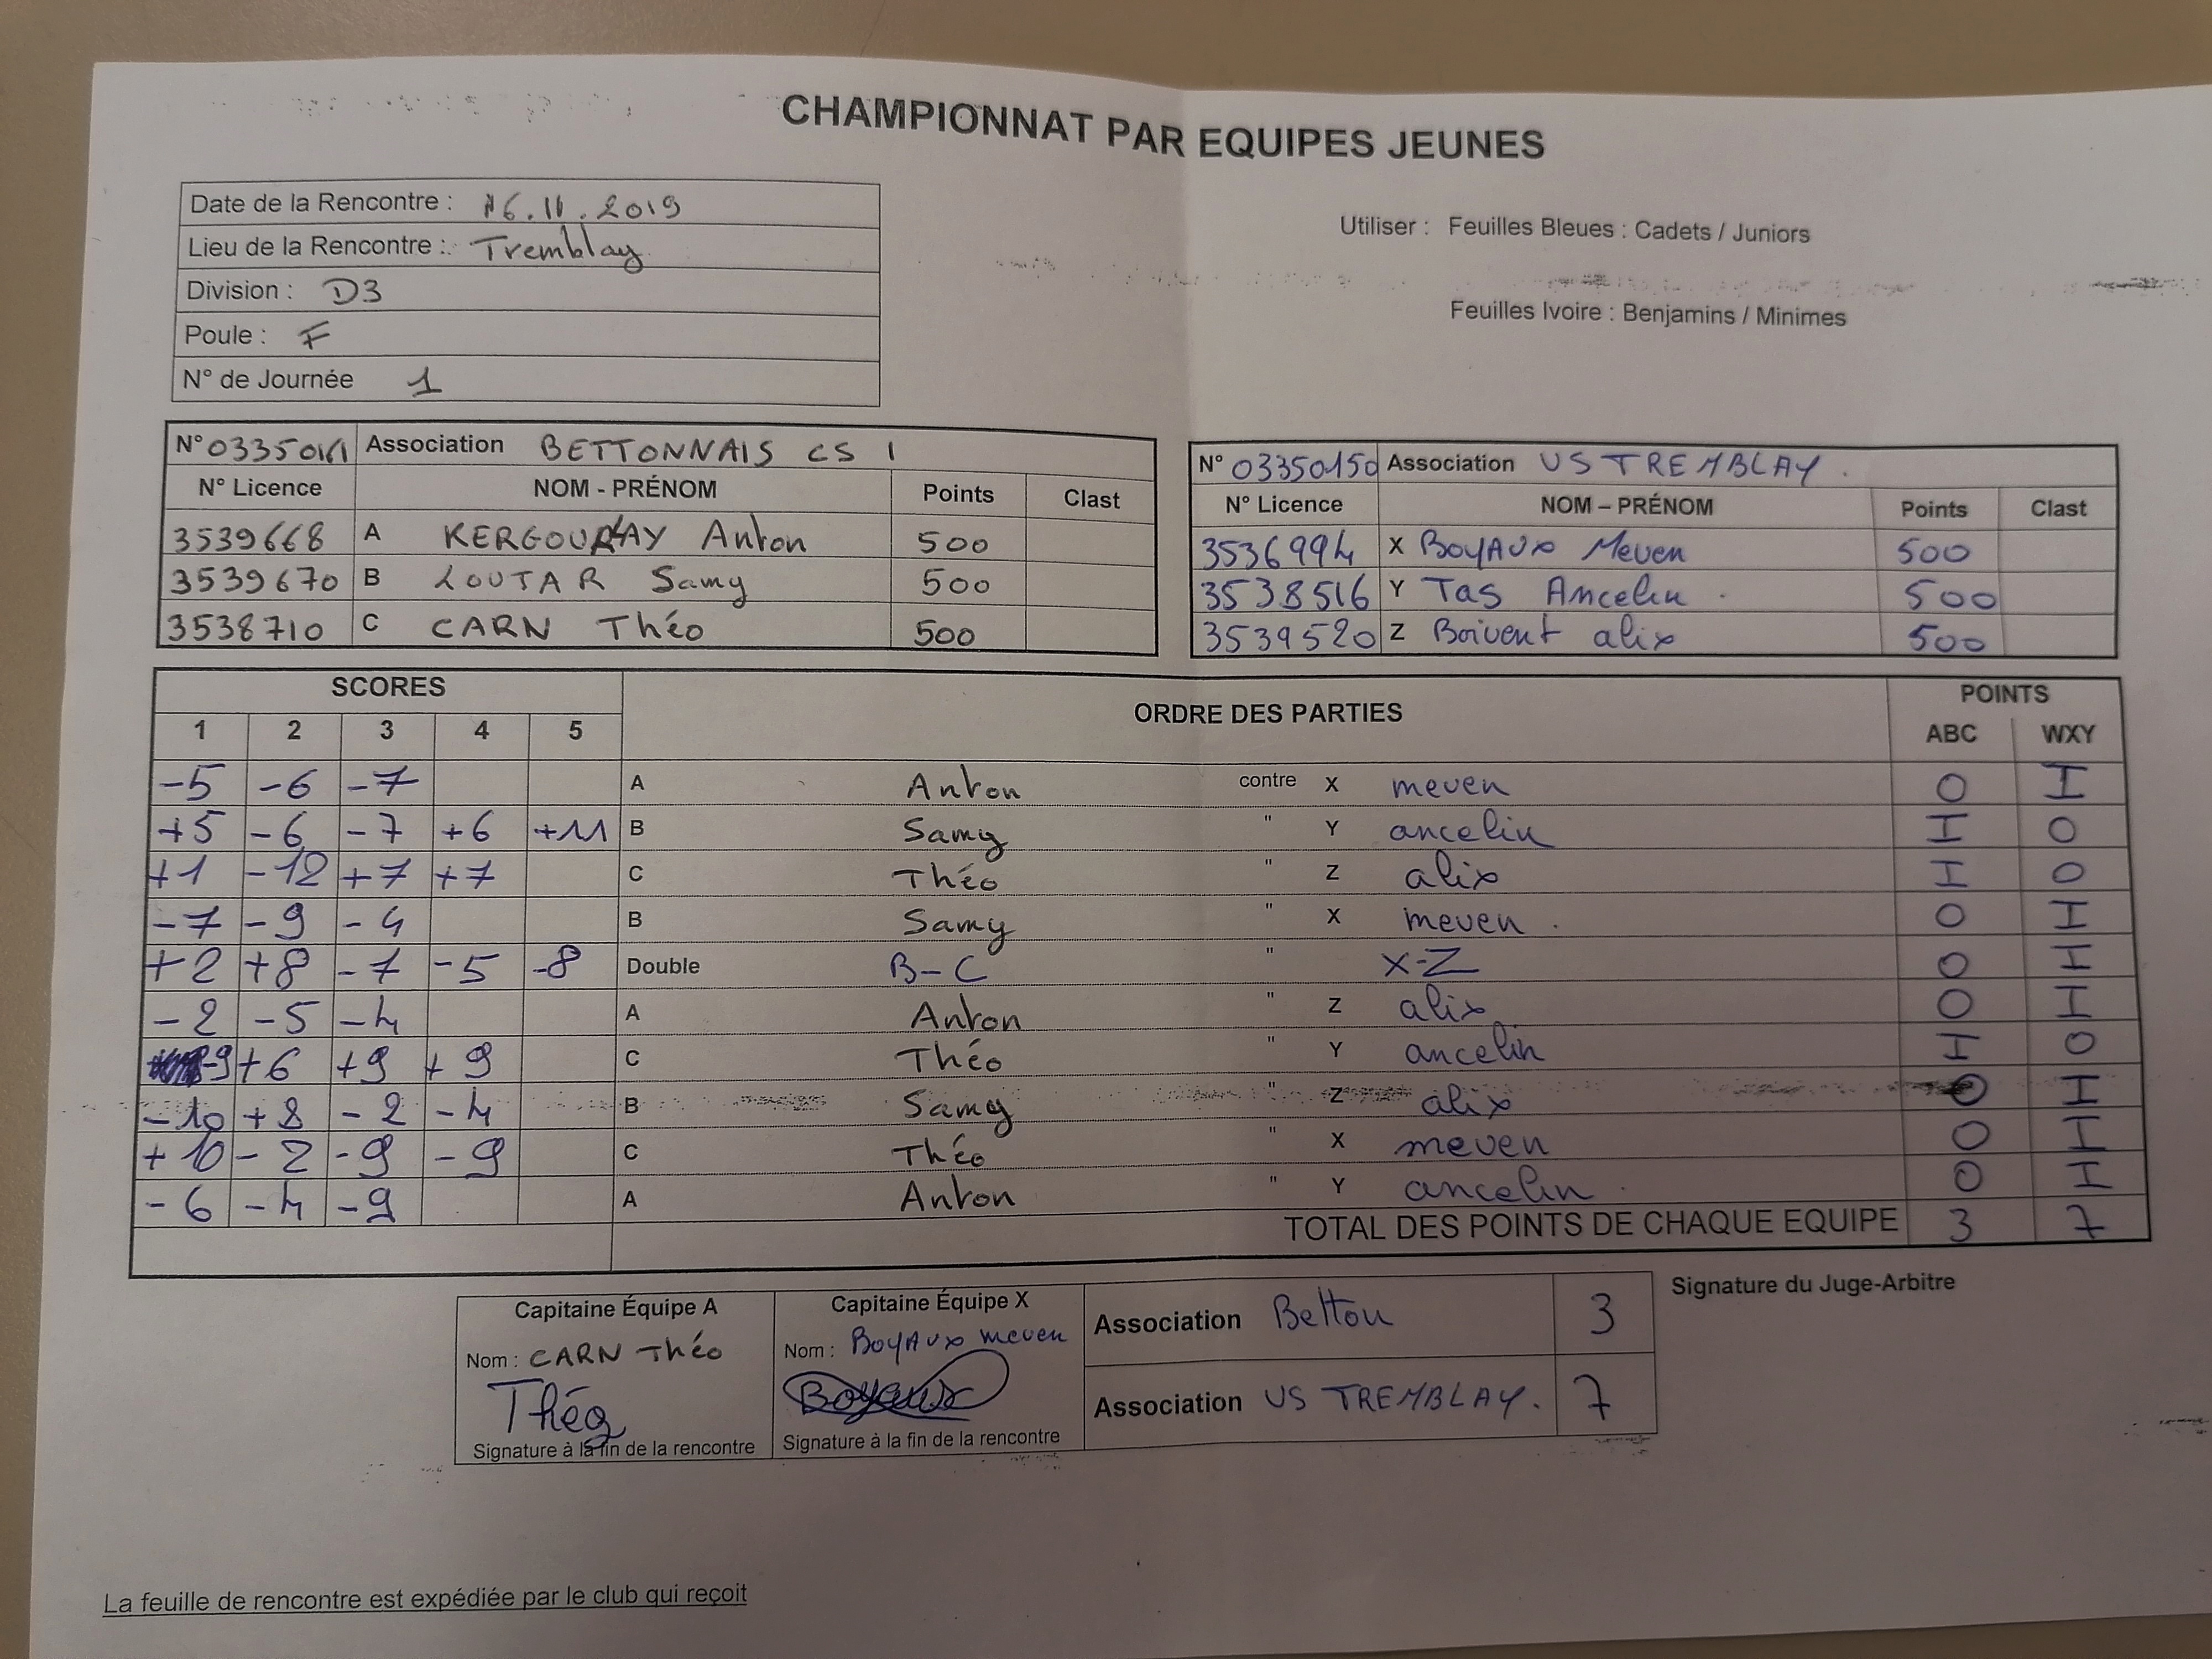 CHAMPIONNAT PAR EQUIPES JEUNES
Date de la Rencontre : 16.11.2019
Lieu de la Rencontre : Tremblay
Division : D3
Poule : F
N° de Journée 1
Utiliser : Feuilles Bleues : Cadets / Juniors
Feuilles Ivoire : Benjamins / Minimes
N° Association BETTONNAIS CS 1
N° Licence NOM - PRÉNOM Points Clast
3539668 A KERGOURLAY Anton 500
3539670 B LOUTAR Samy 500
3538710 C CARN Théo 500
N° 03350150 Association US TREMBLAY.
N° Licence NOM – PRÉNOM Points Clast
3536994 X BOYAUX Meven 500
3538516 Y Tas Ancelin. 500
3539520 Z Boivent alix 500
SCORES ORDRE DES PARTIES POINTS
1 2 3 4 5 ABC WXY
-5 -6 -7 A Anton contre X meven 0 I
+5 -6 -7 +6 +11 B Samy " Y ancelin I 0
+1 -12 +7 +7 C Théo " Z alix I 0
-7 -9 -4 B Samy " X meven. 0 I
+2 +8 -7 -5 -8 Double B-C " X-Z 0 I
-2 -5 -4 A Anton " Z alix 0 I
-9 +6 +9 +9 C Théo " Y ancelin I 0
-10 +8 -2 -4 B Samy " Z alix 0 I
+10 -2 -9 -9 C Théo " X meven 0 I
-6 -4 -9 A Anton " Y ancelin. 0 I
TOTAL DES POINTS DE CHAQUE EQUIPE 3 7
Capitaine Équipe A
Nom : CARN Théo
Théo
Signature à la fin de la rencontre
Capitaine Équipe X
Nom : BOYAUX meven
Boyaux
Signature à la fin de la rencontre
Association Betton 3
Association US TREMBLAY. 7
Signature du Juge-Arbitre
La feuille de rencontre est expédiée par le club qui reçoit